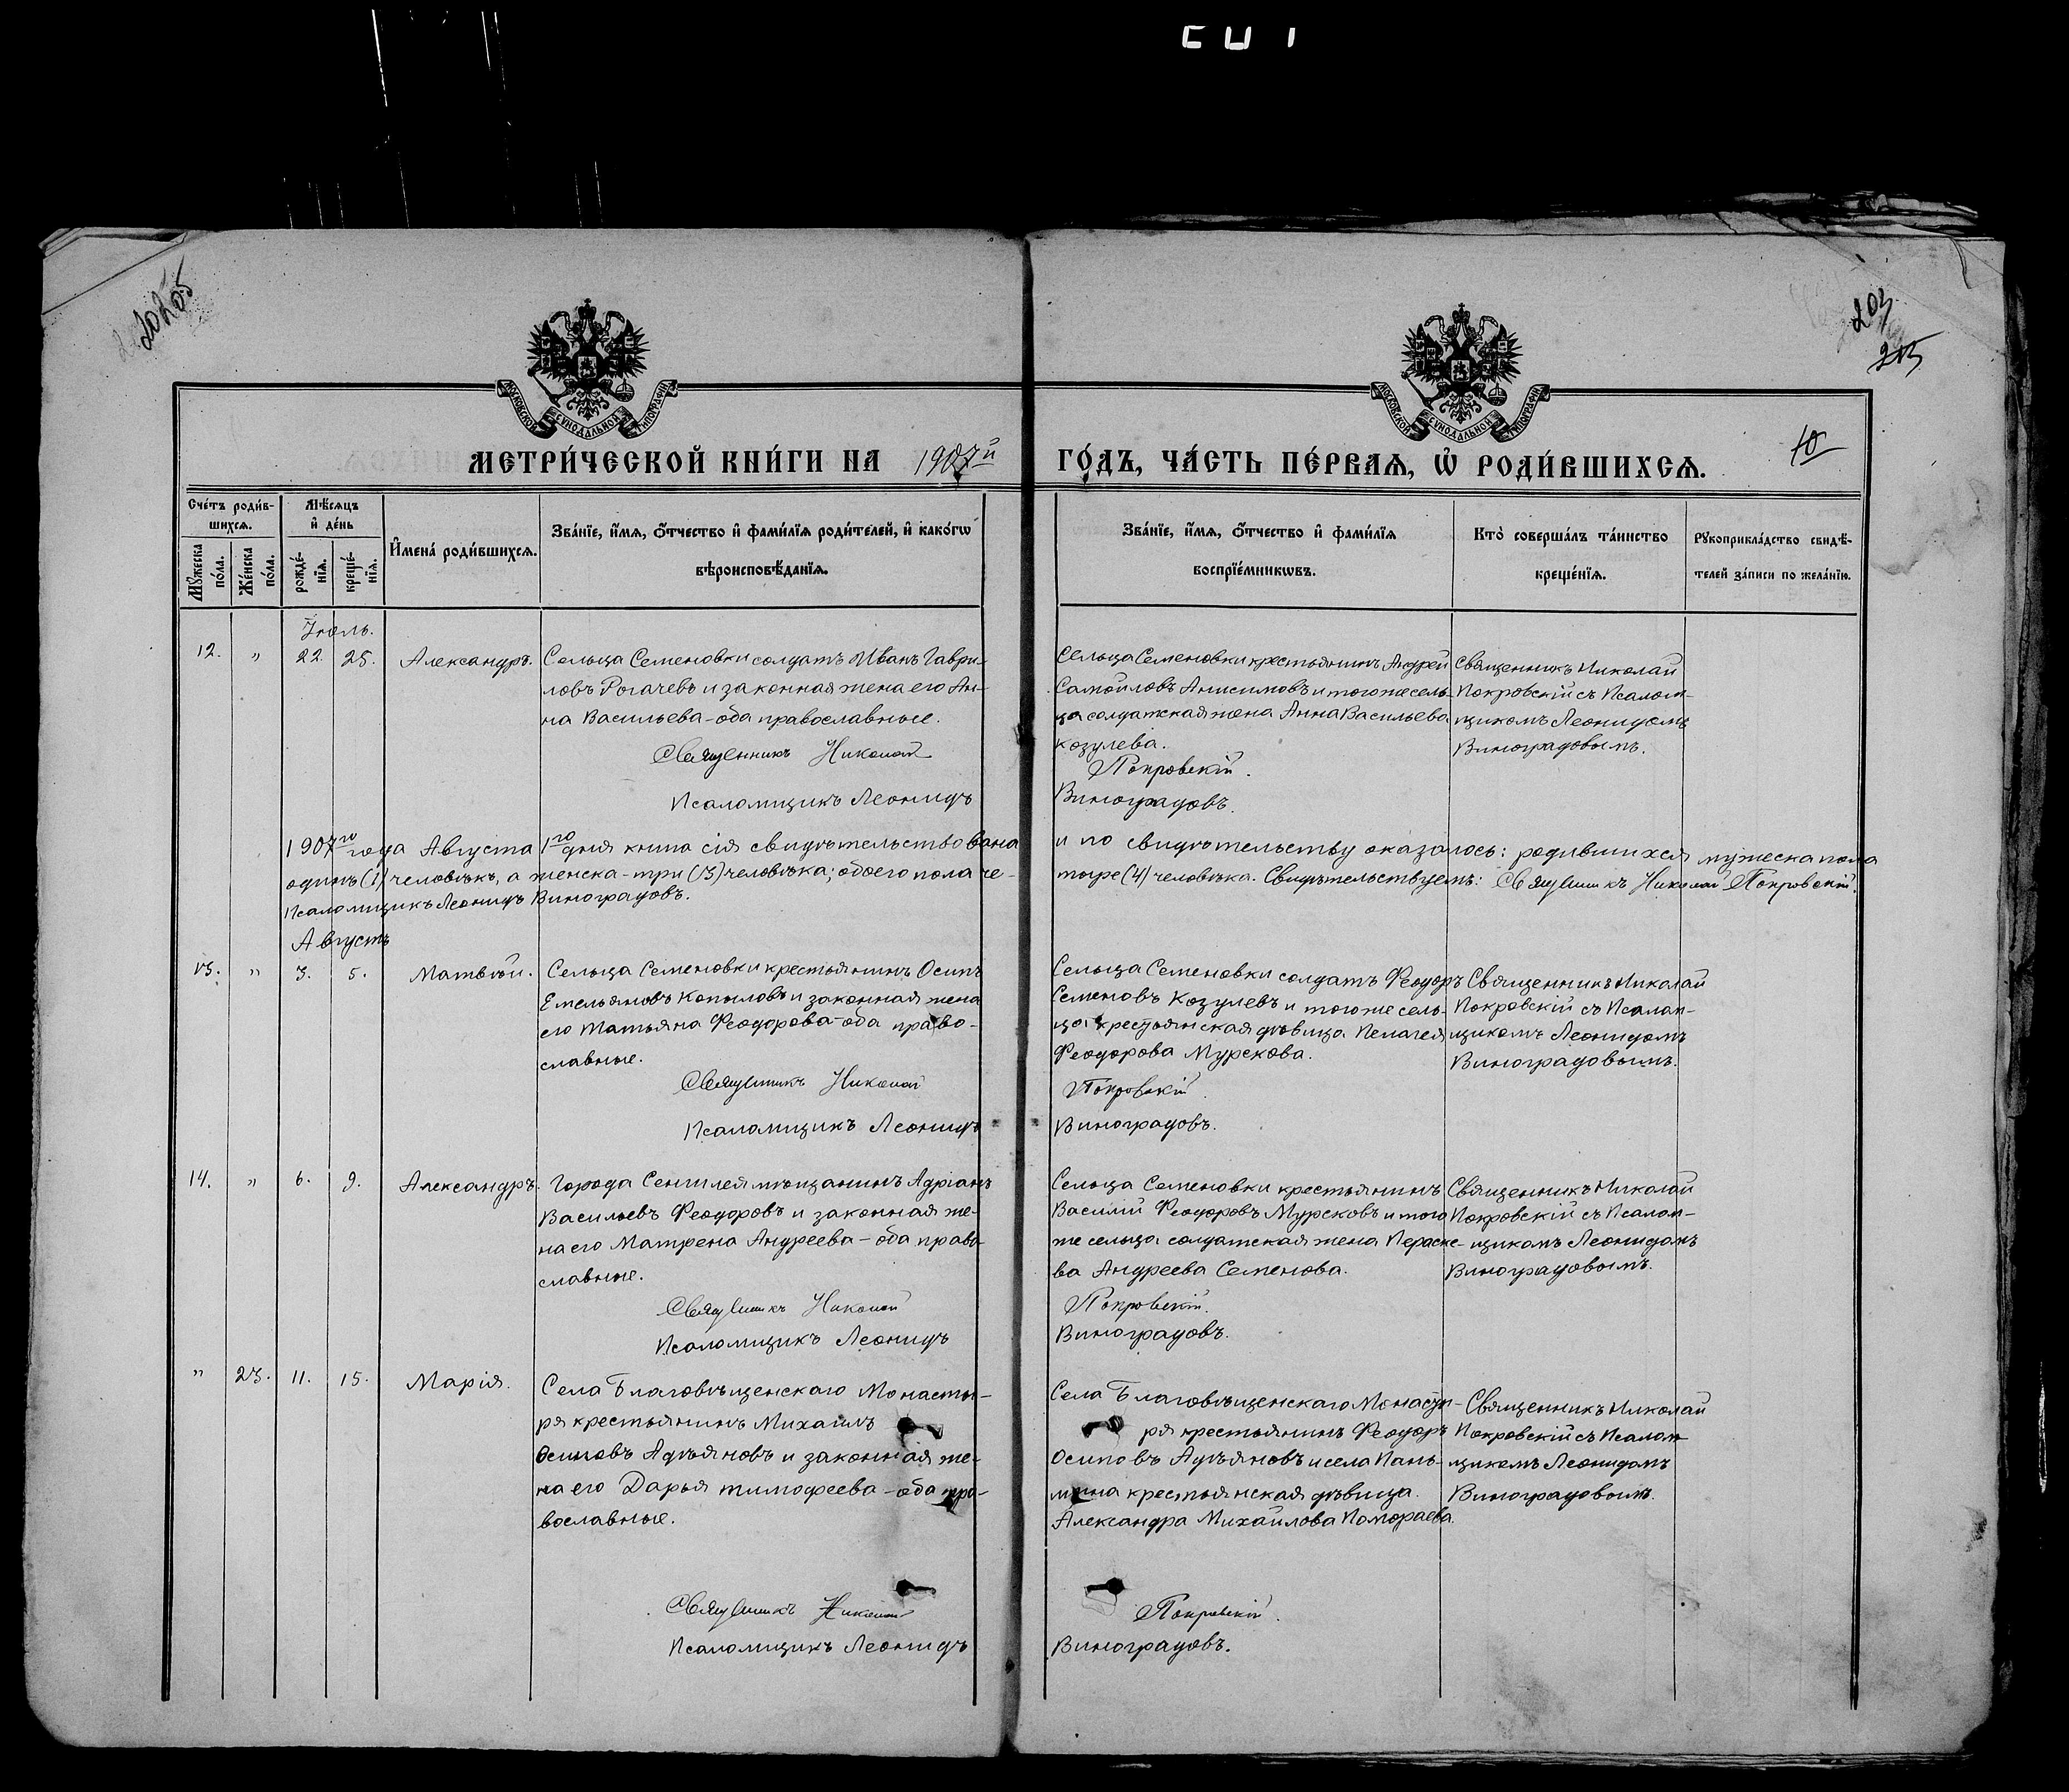 203
МОСКОВСКОЙ СѴНОДАЛЬНОЙ ТИПОГРАФІИ
МОСКОВСКОЙ СѴНОДАЛЬНОЙ ТИПОГРАФІИ
МЕТРИ́ЧЕСКОЙ КНИ́ГИ НА 1907й
ГО́ДЪ, ЧА́СТЬ ПЕ́РВАѦ, Ѡ҆ РОДИ́ВШИХСѦ.
10
Сче́тъ роди́в-
шихсѧ.
Мꙋ́жеска по́ла.
Же́нска по́ла.
Мѣ́сѧцъ
и҆ де́нь
рожде́-
нїѧ.
креще́-
нїѧ.
И҆мена̀ роди́вшихсѧ.
Зва́нїе, и҆́мѧ, ѻ҆́тчество и҆ фами́лїѧ роди́телей, и҆ како́гѡ
вѣроисповѣ́данїѧ.
Зва́нїе, и҆́мѧ, ѻ҆́тчество и҆ фами́лїѧ
воспрїе́мникѡвъ.
Кто̀ соверша́лъ та́инство
креще́нїѧ.
Рꙋкоприкла́дство свидѣ́-
телей за́писи по жела́нїю.
Іюль.
12. " 22. 25. Александръ.
Сельца Семеновки солдатъ Иванъ Гаври-
ловъ Рогачевъ и законная жена его Ан-
на Васильева - оба православные.
Священникъ Николай
Псаломщикъ Леонидъ
Сельца Семеновки крестьянинъ Андрей
Самойловъ Анисимовъ и того же сель-
ца солдатская жена Анна Васильева
Козулева.
Покровскій.
Виноградовъ.
Священникъ Николай
Покровскій съ Псалом-
щикомъ Леонидомъ
Виноградовымъ.
1907го года Августа 1го дня книга сія свидѣтельствована и по свидѣтельству оказалось: родившихся мужеска пола
одинъ (1) человѣкъ, а женска - три (3) человѣка; обоего пола че-
тыре (4) человѣка. Свидѣтельствуемъ: Священникъ Николай Покровскій.
Псаломщикъ Леонидъ Виноградовъ.
Августъ
13. " 3. 5. Матвѣй.
Сельца Семеновки крестьянинъ Осипъ
Емельяновъ Копыловъ и законная жена
его Татьяна Феодорова - оба право-
славные.
Священникъ Николай
Псаломщикъ Леонидъ
Сельца Семеновки солдатъ Феодоръ
Семеновъ Козулевъ и того же сель-
ца крестьянская дѣвица Пелагея
Феодорова Мурскова.
Покровскій.
Виноградовъ.
Священникъ Николай
Покровскій съ Псалом-
щикомъ Леонидомъ
Виноградовымъ.
14. " 6. 9. Александръ.
Города Сенгилея мѣщанинъ Адріанъ
Васильевъ Феодоровъ и законная же-
на его Матрена Андреева - оба право-
славные.
Священникъ Николай
Псаломщикъ Леонидъ
Сельца Семеновки крестьянинъ
Василій Феодоровъ Мурсковъ и того
же сельца солдатская жена Параске-
ва Андреева Семенова.
Покровскій.
Виноградовъ.
Священникъ Николай
Покровскій съ Псалом-
щикомъ Леонидомъ
Виноградовымъ.
" 23. 11. 15. Марія.
Села Благовѣщенскаго Монасты-
ря крестьянинъ Михаилъ
Осиповъ Адѣяновъ и законная же-
на его Дарья Тимофеева - оба пра-
вославные.
Священникъ Николай
Псаломщикъ Леонидъ
Села Благовѣщенскаго Монасты-
ря крестьянинъ Феодоръ
Осиповъ Адѣяновъ и села Пань-
шина крестьянская дѣвица
Александра Михайлова Помораева.
Покровскій.
Виноградовъ.
Священникъ Николай
Покровскій съ Псалом-
щикомъ Леонидомъ
Виноградовымъ.